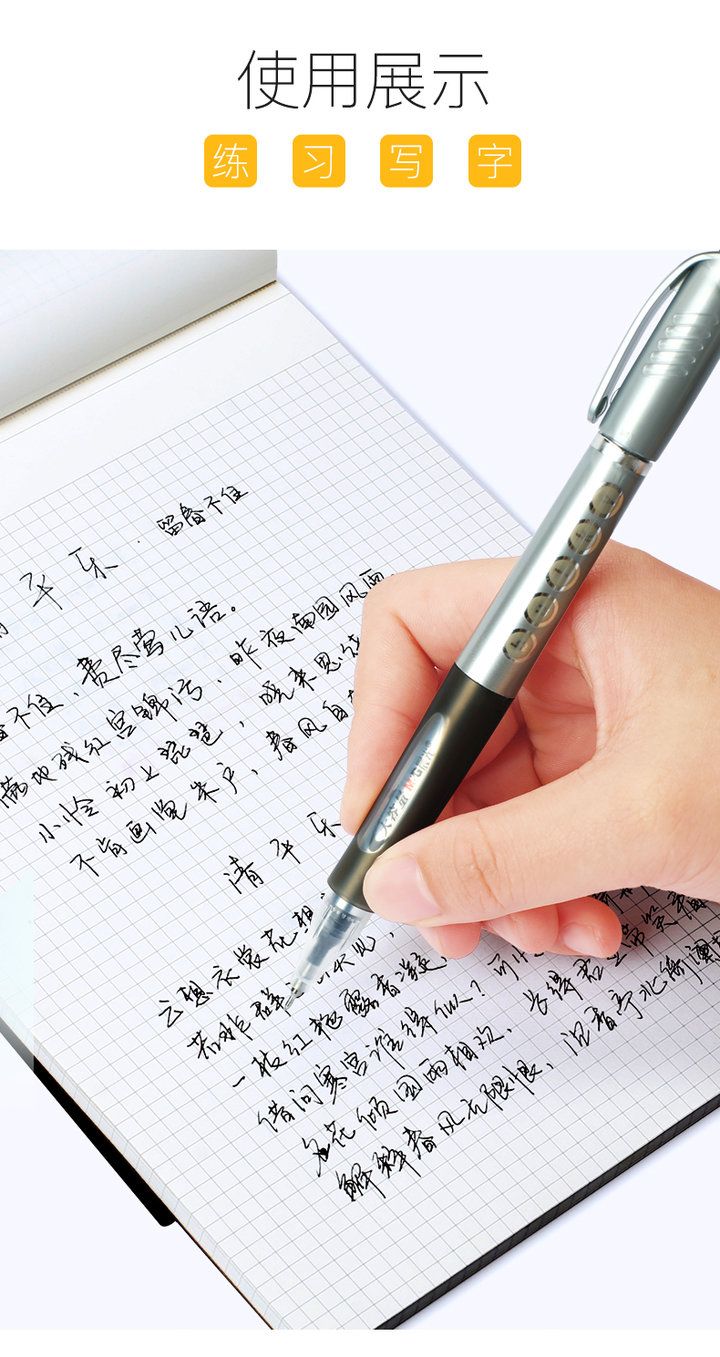 使用展示
练习写字
平乐·留春不住
不住、费尽莺儿语。
满地残红宫锦污,昨夜南园风雨
小怜初上琵琶,晓来思绕
不肯画堂朱户,春风自
清平乐
云想衣裳花想
若非群
一枝红艳露香凝,
借问寒宫谁得似?可
名花倾国两相欢,长得君王带笑看
解释春风无限恨,沉香亭北倚阑
大容量 M&G晨光